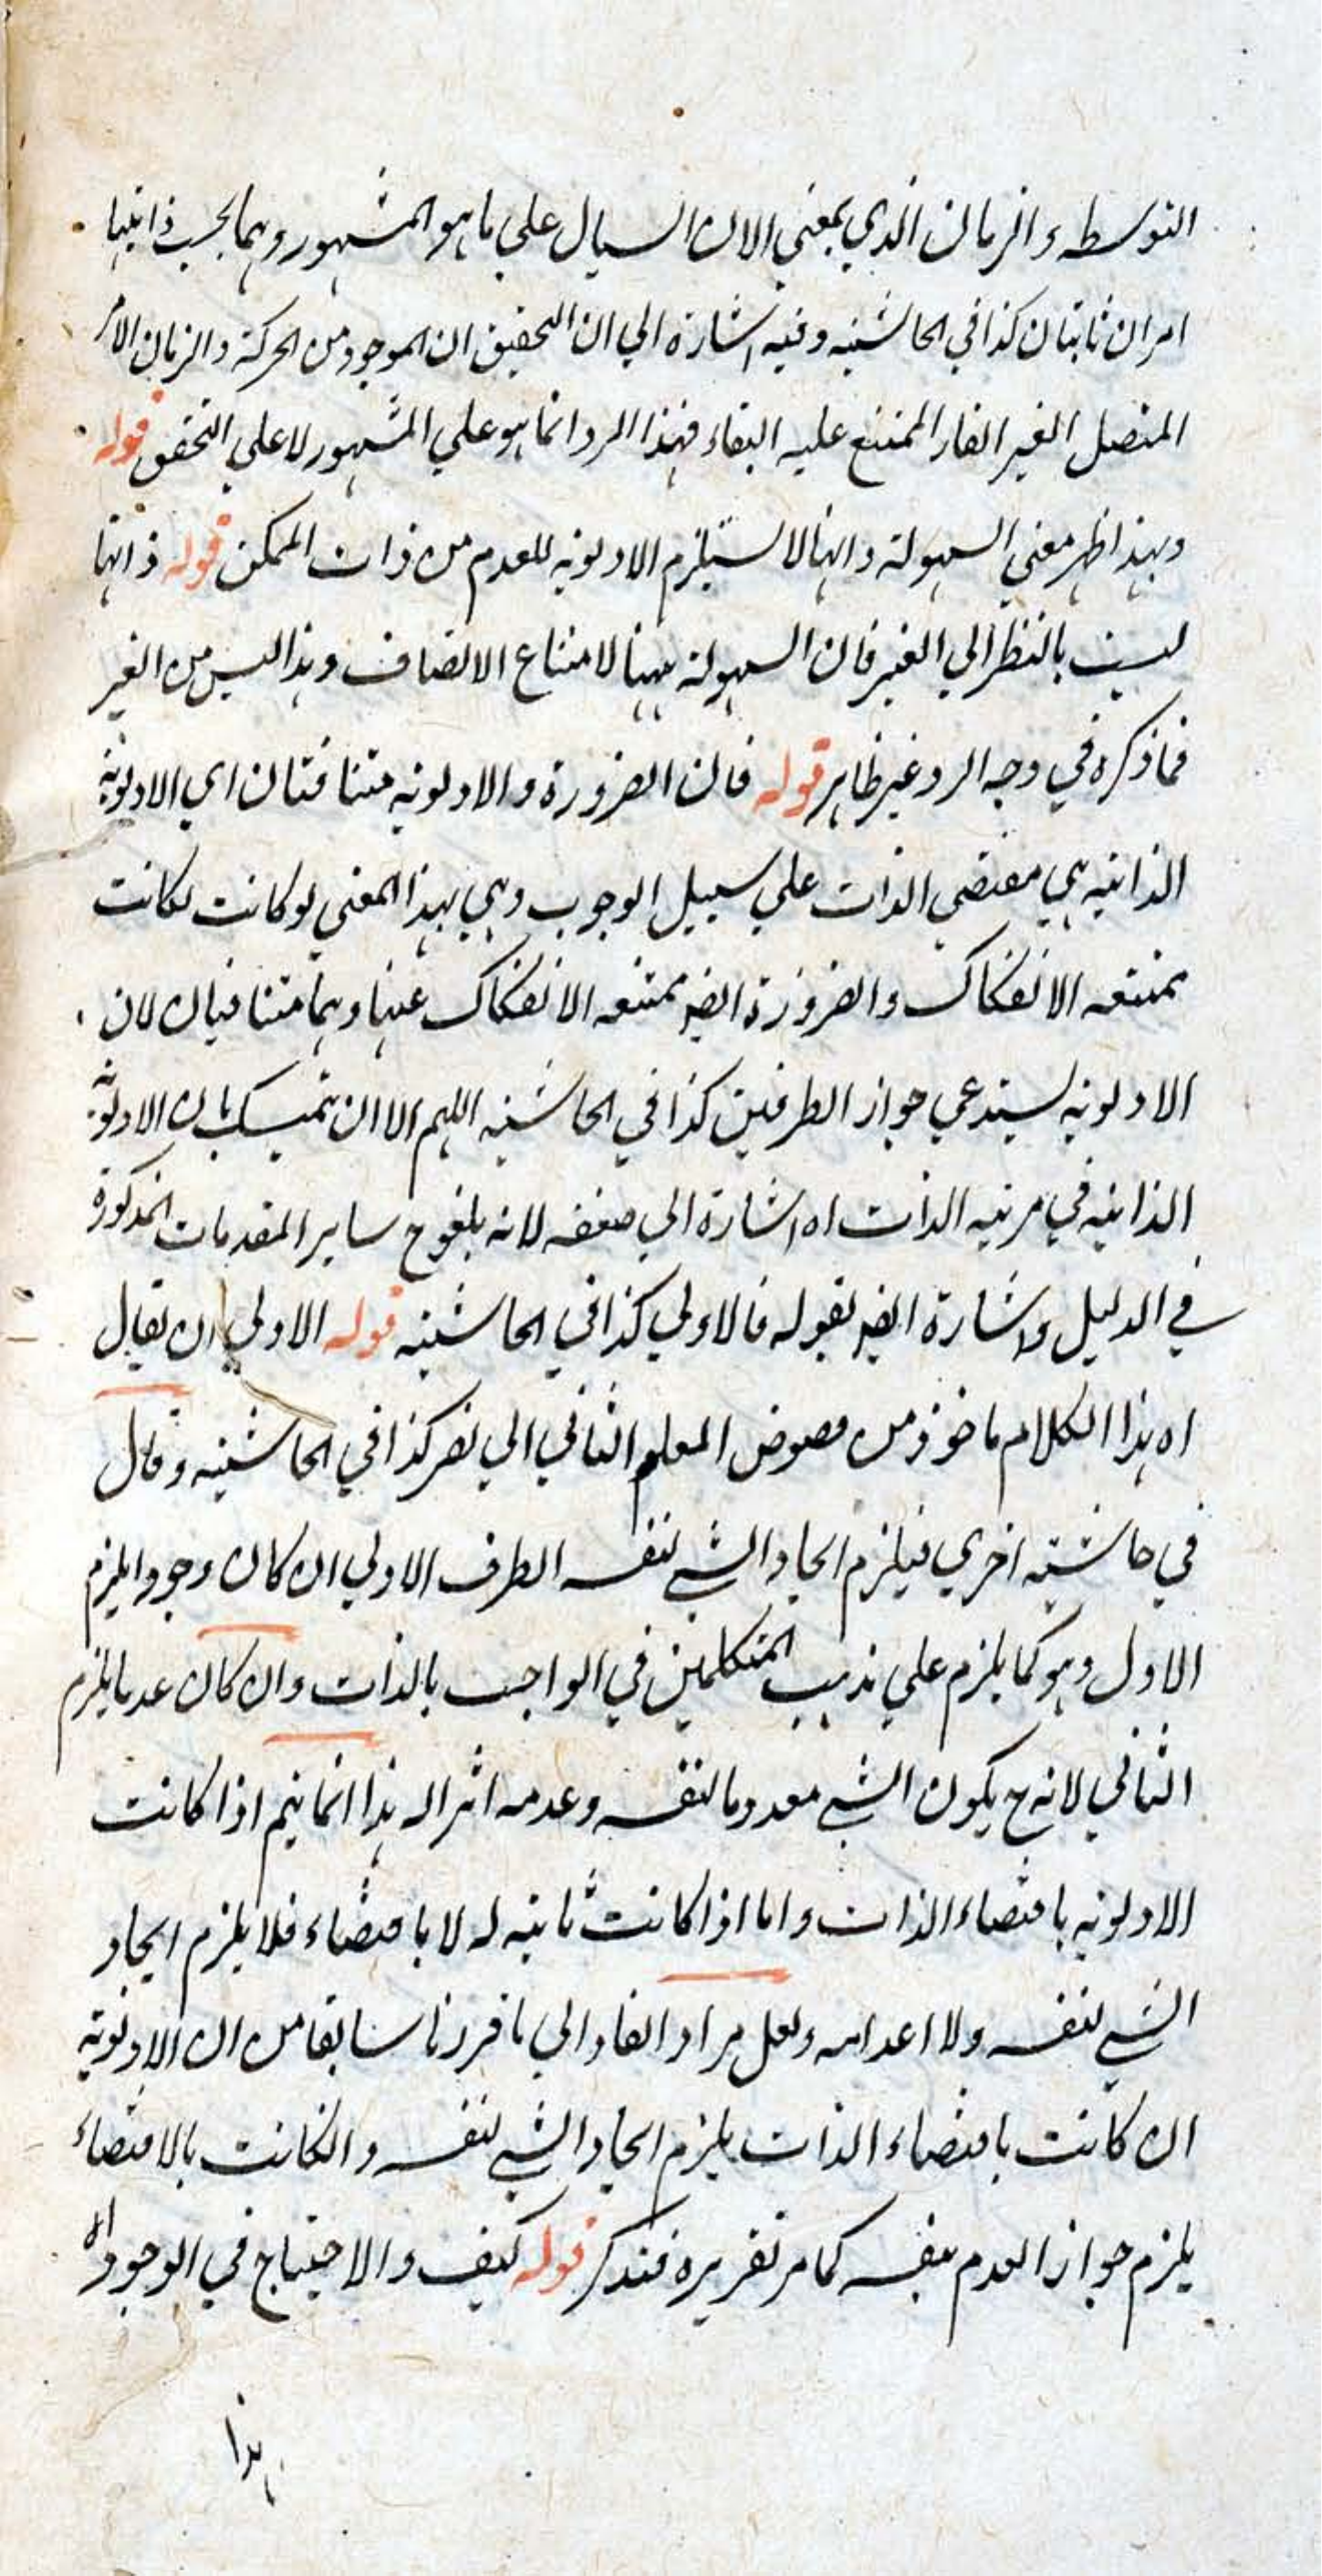 التوسطه والزمان الذي بمعني الان السيال علي ما هو المشهور وهما بحسب ذاتيهما
امران ثابتان كذا في الحاشيه وفيه اشارة الي ان التحقيق ان الموجود من الحركة والزمان الامر
المتصل الغير القار الممتنع عليه البقاء فهذا الرد انما هو علي المشهور لا علي التحقق قوله
وبهذا ظهر معني السهولة وانها لا تستلزم الاولويه للعدم من ذات الممكن قوله ذاتها
ليست بالنظر الي الغير فان السهولة ههنا لامتناع الاتصاف وهذا ليس من الغير
فما ذكره في وجه الرد غير ظاهر قوله فان الضرورة والاولويه متنافتان اي الاولوية
الذاتيه هي مقتضي الذات علي سبيل الوجوب وهي بهذا المعني لو كانت لكانت
ممتنعه الانفكاك والضرورة ايضا ممتنعه الانفكاك عنها وهما متنافيان لان
الاولويه يستدعي جواز الطرفين كذا في الحاشيه اللهم الا ان يتمسك بان الاولوية
الذاتيه في مرتبه الذات اه اشارة الي ضعفه لانه يلغوح ساير المقدمات المذكورة
في الدليل واشارة ايضا بقوله فالاولي كذا في الحاشيه قوله الاولي ان يقال
اه هذا الكلام ماخوذ من فصوص المعلم الثاني ابي نصر كذا في الحاشيه وقال
في حاشيته اخري فيلزم ايجاد الشي لنفسه الطرف الاولي ان كان وجودا يلزم
الاول وهو كما يلزم علي مذهب المتكلمين في الواجب بالذات وان كان عدما يلزم
الثاني لانه ح يكون الشي معدوما لنفسه وعدمه اثرا له هذا انما يتم اذا كانت
الاولويه باقتضاء الذات واما اذا كانت ثابته له لا باقتضاء فلا يلزم ايجاد
الشي لنفسه ولا اعدامه ولعل مراد الفارابي ما قررنا سابقا من ان الاولوية
ان كانت باقتضاء الذات يلزم ايجاد الشي لنفسه وانكانت بالاقتضاء
يلزم جواز العدم بنفسه كما مر تقريره فتذكر قوله كيف والاحتياج في الوجود اه
هذا